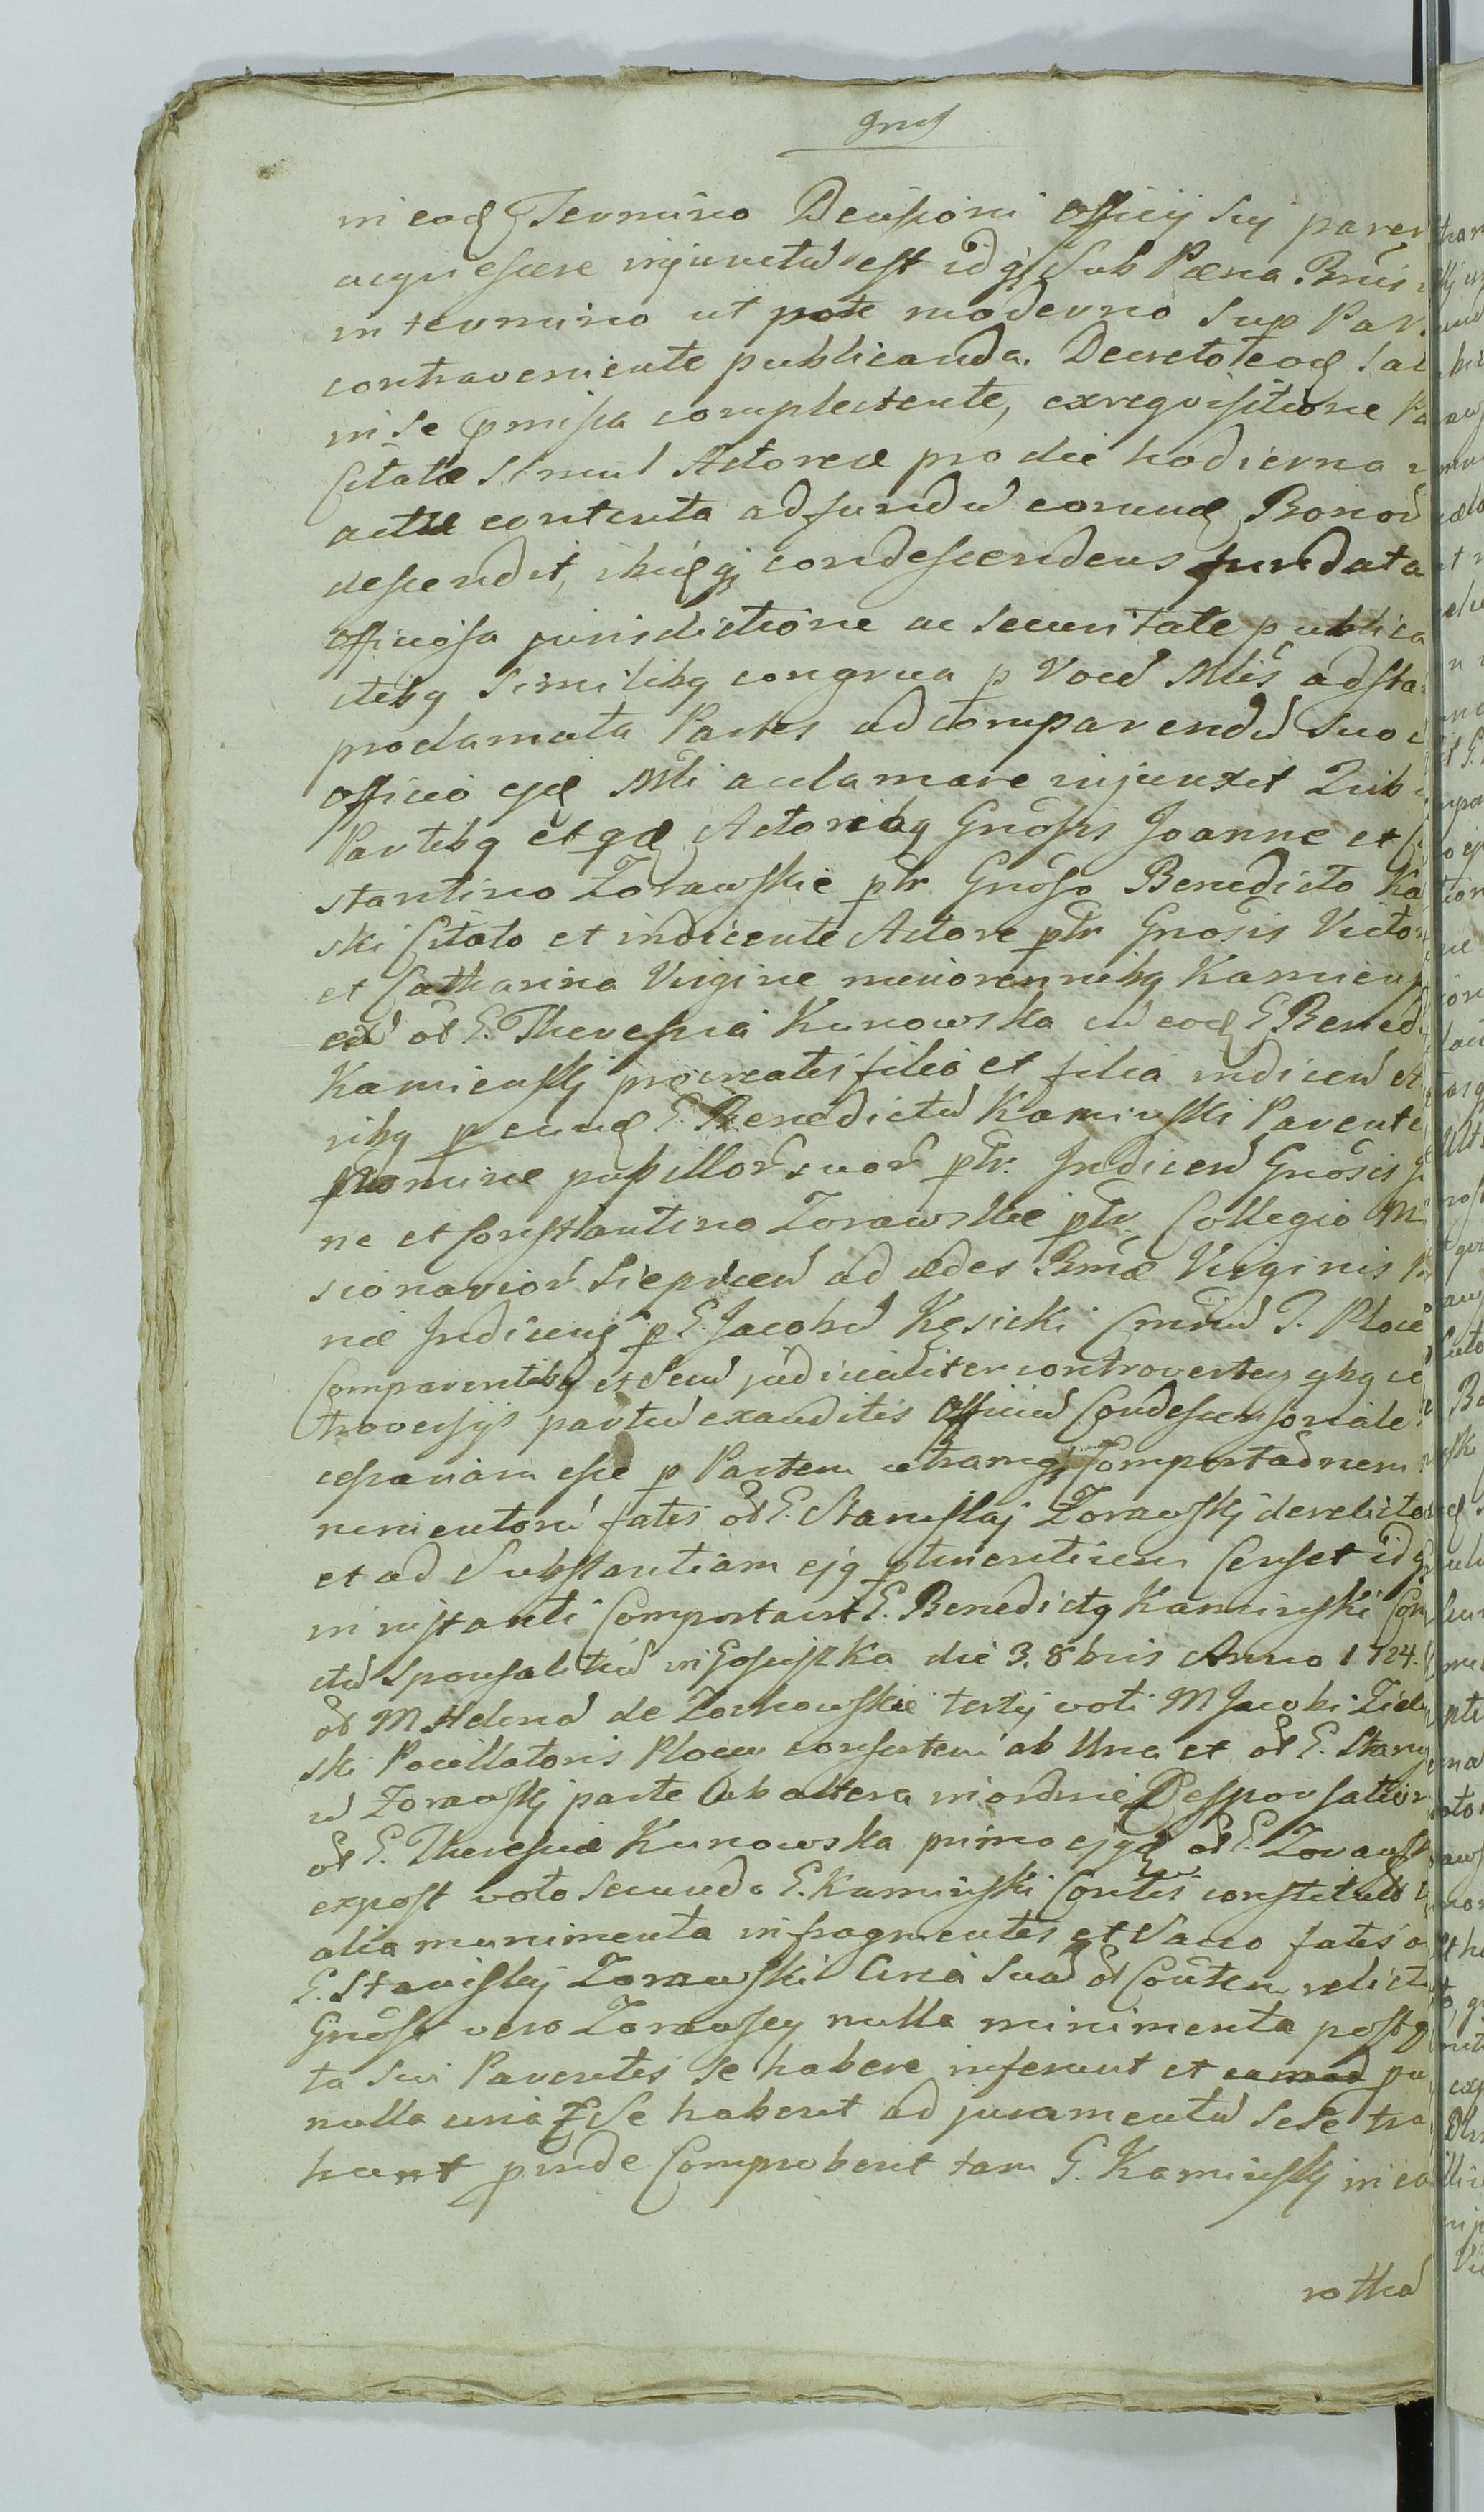 in eod Termino Decisioni Officij Sui parer
acquiescere injunctu est idq Sub Poena Bnis
in termino ut pote moderno Sup Par
contraveniente publicanda. Decreto eod Sat
in Se pmissa complectente, ex requisitione Pa
Citatæ Simul Actoreæ pro die hodierna
actu contenta ad fundu eorund Bonor
descendit, ibidq condescendens fundata
officiosa jurisdictione ac Securitate publica
ctibq Similibq congrua p Voce Mlis adsta
proclamata Partes ad comparendu Suo
Officio ejd Mli aclamare injunxit Quib
Partibq et qd Actoribq Gnosis Joanne et
stantino Zorawskie ptr Gnoso Benedicto Ka
ski Citato et indicente Actore ptr Gnosis Victor
et Catharina Virgine minorennibq Kamiens
ex od G. Theressia Kunowska cu eod G Bened
Kamienskj procreatis filio et filia indicen et
ribq p eund G. Benedictu Kaminski Parente
nomine pupillor suor ptr. Indicen Gnosis
ne et Constantino Zorawskie ptr Collegio M
sionarior Siepricen ad ædes Bmæ Virginis
næ Indicen p G. Jacobu Kęsicki Cmdu T. Ploce
Comparentibq et Secu judicialiter controverten qbq
troversijs partiu exauditis Officiu Condescensoriale
cessariam esse p Partem utramq Comportaonem
nimentoru fatis od G. Stanislaj Zorawskj derelicto
et ad Substantiam ejq ptinentium Censet idq
in instanti Comportavit G. Benedictq Kaminski Con
ctu Sponsalitiu in Gosliszka die 3. 8bris Anno 1724.
od M Helena de Zochowskie tertij voti M Jacobi Ziel
ski Pocillatoris Plocen consortem ab Una et od G. Stany
u Zorawskj parte ab altera in ordine Desponsation
od G. Theressiæ Kunowska primo ejqd od G. Zorawsk
expost voto Secundo G. Kaminski Contis constitut
alia munimenta in fragmentis et Sacco fatis o
G. Stanislaj Zorawski Una Sua od Conten relict
Gnosi vero Zorawscy nulla minimenta post
ta Sui Parentis Se habere inferunt et pu
nulla una Se haberet ad juramentu Sese tra
hunt pinde Comprobent tam G. Kaminskj in ea
rotha